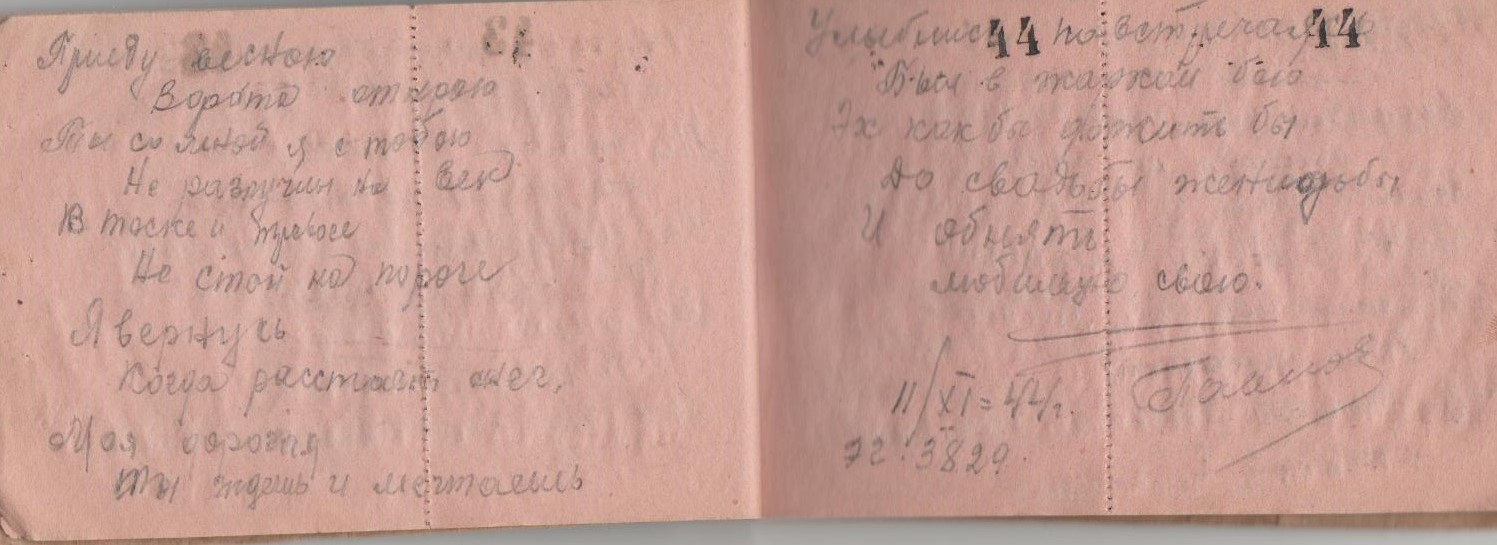 Приеду весною
Ворота открою
Ты со мной я с тобою
Не разлучны на век
В тоске и тревоге
Не стой на пороге
Я вернусь
Когда растает снег.
Моя дорогая
Ты ждешь и мечтаешь
44 44
Улыбнись по встречаясь
Был в жарком бою
Эх как бы дожить бы
До свадьбы женидьбы
И обнять
любимую свою.
11/XI=44г.
3829.